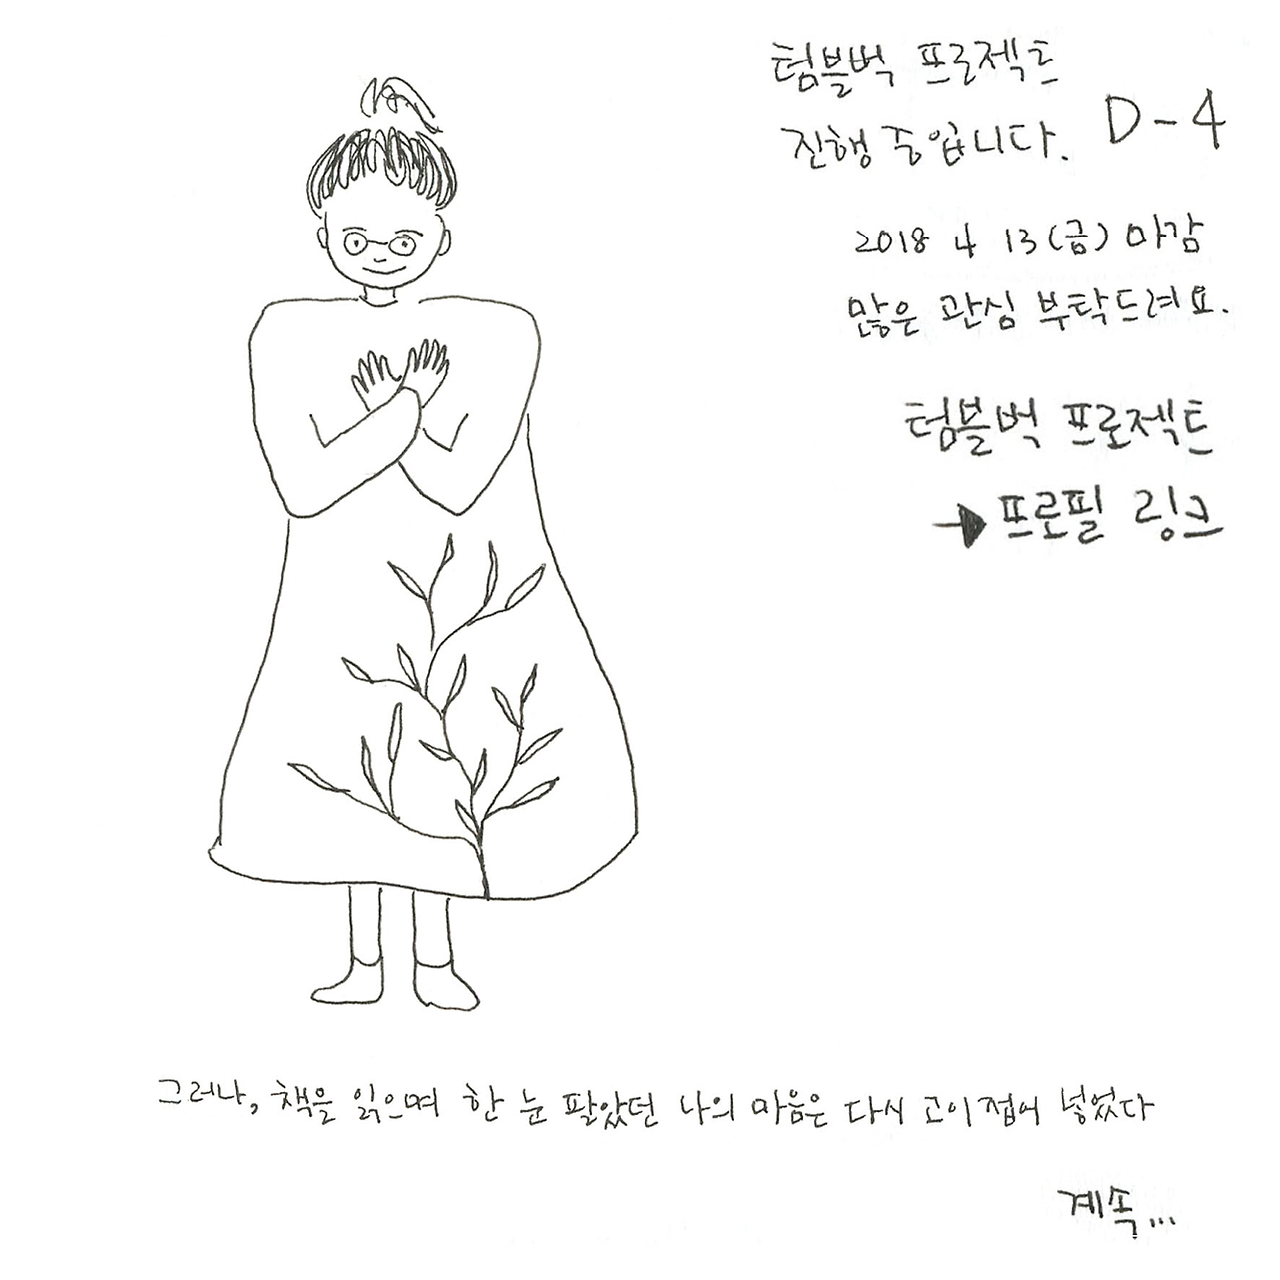 텀블벅 프로젝트
진행 중입니다. D-4
2018 4 13(금) 마감
많은 관심 부탁드려요.
텀블벅 프로젝트
→ 프로필 링크
그러나, 책을 읽으며 한 눈 팔았던 나의 마음은 다시 고이 접어 넣었다
계속...